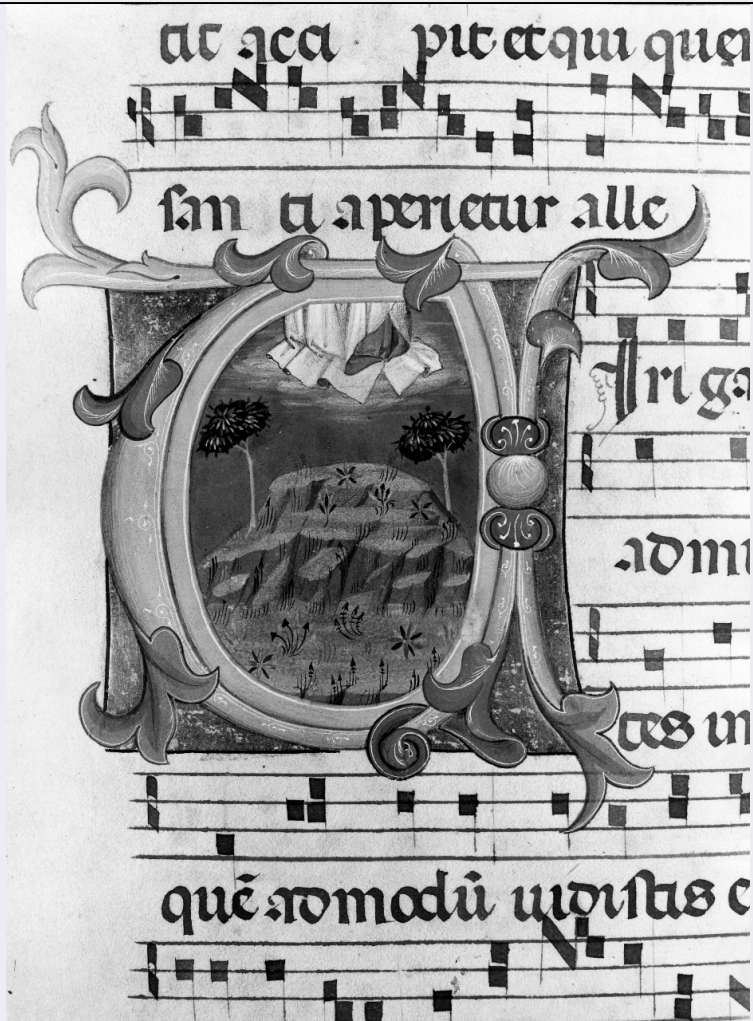 tit acci pit et qui quer
san ti aperietur alle
Vi ri ga
admi
tes in
quē admodū uidistis e